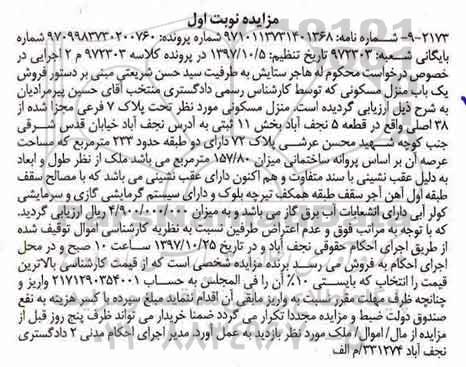 مزایده نوبت اول
۲۱۷۳-۹- شماره نامه: ۹۷۱۰۱۱۳۷۳۱۴۰۱۳۶۸ شماره پرونده: ۹۷۰۹۹۸۳۷۳۰۲۰۰۷۶۰ شماره
بایگانی شعبه: ۹۷۲۳۰۳ تاریخ تنظیم: ۱۳۹۷/۱۰/۵ در پرونده کلاسه ۹۷۲۳۰۳ م ۲ اجرایی در
خصوص درخواست محکوم له هاجر ستایش به طرفیت سید حسن شریعتی مبنی بر دستور فروش
یک باب منزل مسکونی که توسط کارشناس رسمی دادگستری منتخب آقای حسین پیرمرادیان
به شرح ذیل ارزیابی گردیده است. منزل مسکونی مورد نظر تحت پلاک ۷ فرعی مجزا شده از
۳۸ اصلی واقع در قطعه ۵ نجف آباد بخش ۱۱ ثبتی به آدرس نجف آباد خیابان قدس شرقی
جنب کوچه شهید محسن عرشی پلاک ۷۲ دارای دو طبقه حدود ۲۳۳ مترمربع که مساحت
عرصه آن بر اساس پروانه ساختمانی میزان ۱۵۷/۸۰ مترمربع می باشد ملک از نظر طول و ابعاد
به دلیل عقب نشینی با سند متفاوت و هم اکنون دارای عقب نشینی می باشد که با مصالح سقف
طبقه اول آهن آجر سقف طبقه همکف تیرچه بلوک و دارای سیستم گرمایشی گازی و سرمایشی
کولر آبی دارای انشعابات آب برق گاز می باشد و به میزان ۴/۹۰۰/۰۰۰/۰۰۰ ریال ارزیابی گردید.
که با توجه به مراتب فوق و عدم اعتراض طرفین نسبت به نظریه کارشناسی اموال توقیف شده
از طریق اجرای احکام حقوقی نجف آباد و در تاریخ ۱۳۹۷/۱۰/۲۵ ساعت ۱۰ صبح و در محل
اجرای احکام به فروش می رسد برنده مزایده شخصی است که از قیمت کارشناسی بالاترین
قیمت را انتخاب که بایستی ۱۰٪ آن را فی المجلس به حساب ۲۱۷۱۲۹۰۳۵۴۰۰۱ واریز و
چنانچه ظرف مهلت مقرر نسبت به واریز مابقی آن اقدام ننماید مبلغ سپرده با کسر هزینه به نفع
صندوق دولت ضبط و مزایده مجددا تکرار می گردد ضمنا خریدار می تواند ظرف پنج روز قبل از
مزایده از مال/ اموال/ ملک مورد نظر بازدید به عمل آورد. مدیر اجرای احکام مدنی ۲ دادگستری
نجف آباد ۳۳۱۲۷۴/م الف